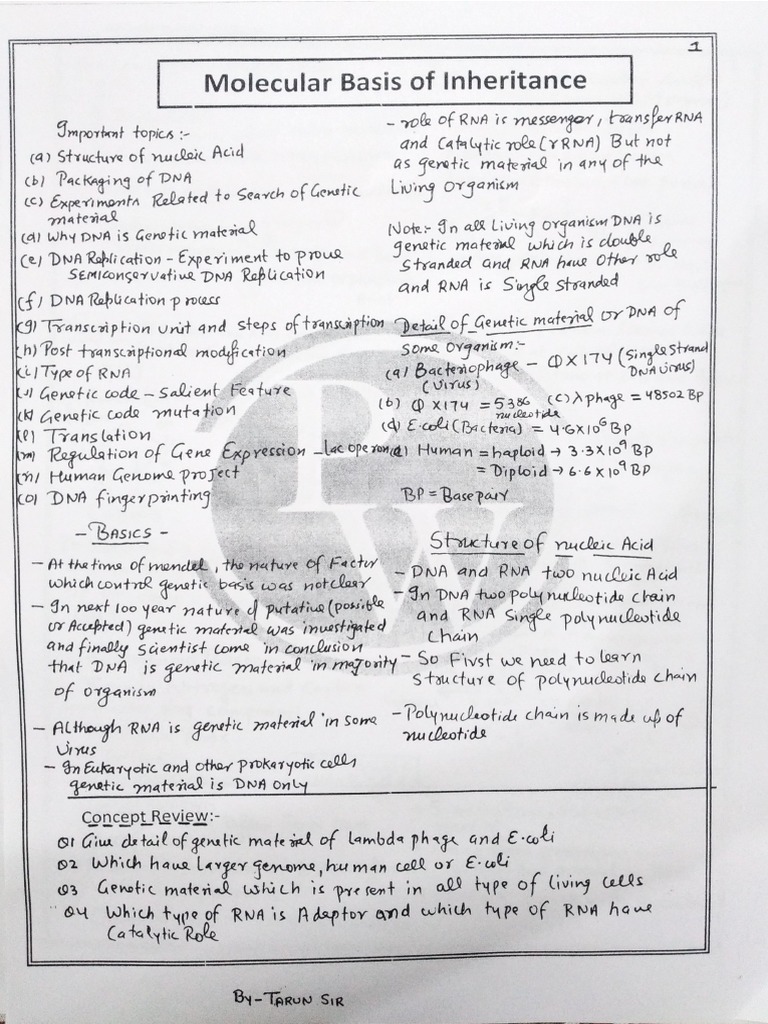 1
Molecular Basis of Inheritance
Important topics:-
(a) Structure of nucleic Acid
(b) Packaging of DNA
(c) Experiments Related to Search of Genetic
material
(d) Why DNA is Genetic material
(e) DNA Replication - Experiment to prove
SEMICONSERVATIVE DNA Replication
(f) DNA Replication process
(g) Transcription unit and steps of transcription
(h) Post transcriptional modification
(i) Type of RNA
(J) Genetic code - Salient Feature
(k) Genetic code mutation
(l) Translation
(m) Regulation of Gene Expression - lac operon
(n) Human Genome project
(o) DNA fingerprinting
- BASICS -
- At the time of mendel, the nature of Factor
which control genetic basis was not clear
- In next 100 year nature of putative (possible
or Accepted) genetic material was investigated
and finally scientist come in conclusion
that DNA is genetic material in majority
of organism
- Although RNA is genetic material in some
virus
- In Eukaryotic and other prokaryotic cells
genetic material is DNA only
- role of RNA is messenger, transfer RNA
and Catalytic role (rRNA) But not
as genetic material in any of the
Living organism
Note:- In all Living organism DNA is
genetic material which is double
stranded and RNA have other role
and RNA is Single stranded
Detail of Genetic material or DNA of
some organism:-
(a) Bacteriophage - Φ X 174 (Single Strand
(virus) DNA virus)
(b) Φ X 174 = 5386 (c) λ phage = 48502 BP
nucleotide
(d) E.coli (Bacteria) = 4.6X10⁶ BP
(e) Human = haploid → 3.3X10⁹ BP
= Diploid → 6.6 X10⁹ BP
BP = Base pair
Structure of nucleic Acid
- DNA and RNA two nucleic Acid
- In DNA two polynucleotide chain
and RNA Single polynucleotide
chain
- So First we need to learn
structure of polynucleotide chain
- Polynucleotide chain is made up of
nucleotide
PW
Concept Review:-
Q1 Give detail of genetic material of Lambda phage and E.coli
Q2 Which have Larger genome, human cell or E.coli
Q3 Genetic material which is present in all type of living cells
Q4 Which type of RNA is Adaptor and which type of RNA have
Catalytic Role
By-TARUN SIR